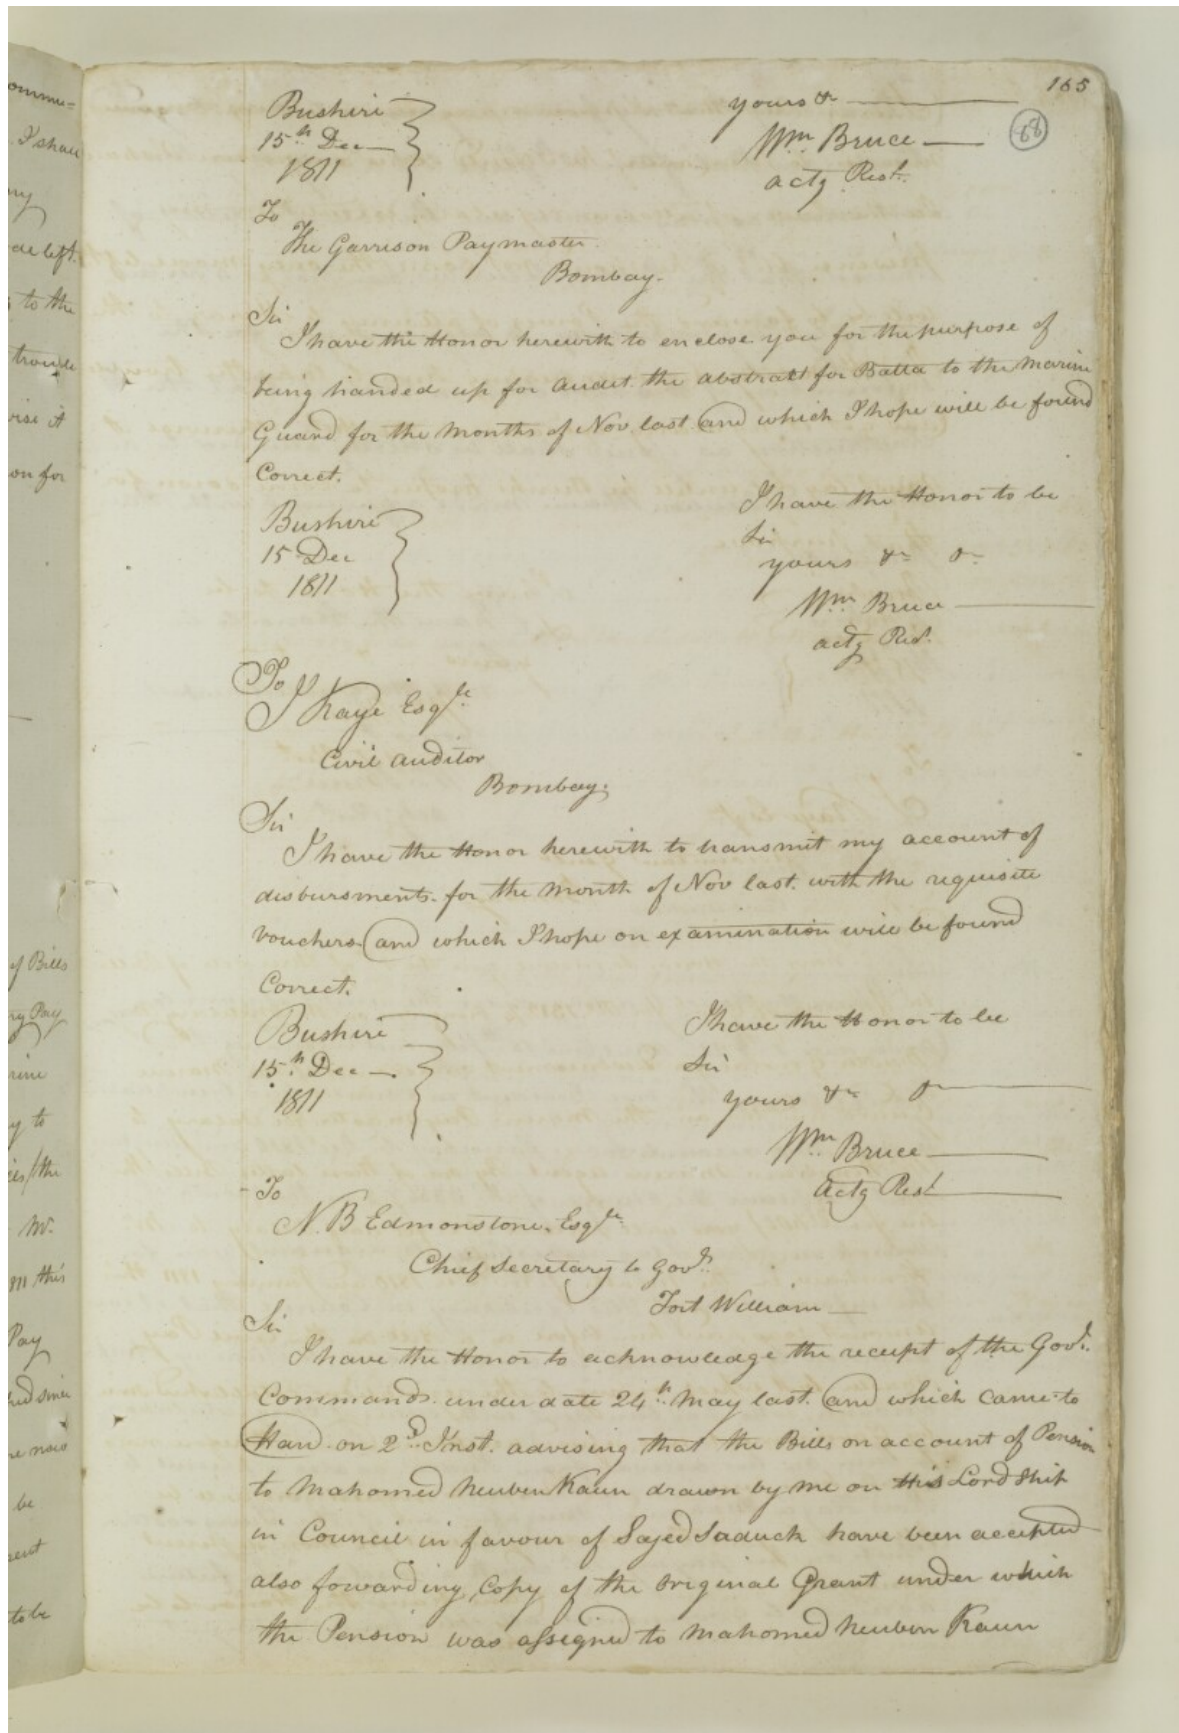 165
88
Bushire
15th Dec
1811
yours &c
Wm Bruce
actg Resdt.
To
The Garrison Paymaster
Bombay.
Sir
I have the Honor herewith to enclose you for the purpose of
being handed up for audit the abstract for Batta to the Marine
Guard for the Months of Nov last and which I hope will be found
Correct.
I have the Honor to be
Sir
yours &c &c
Wm Bruce
actg Resdt.
Bushire
15 Dec
1811
To
J Kaye Esqre
Civil auditor
Bombay.
Sir
I have the Honor herewith to transmit my account of
disbursments for the Month of Nov last. with the requisite
vouchers and which I hope on examination will be found
Correct.
I have the Honor to be
Sir
yours &c &c
Wm Bruce
Actg Resdt
Bushire
15th Dec
1811
To
N. B Edmonstone. Esqre
Chief Secretary to Govt.
Fort William
Sir
I have the Honor to acknowledge the receipt of the Govt.
Commands under date 24th May last and which came to
Hand on 2d Inst. advising that the Bills on account of Pension
to Mahomed Neuben Kaun drawn by me on His Lord Ship
in Council in favour of Sayed Saduck have been accepted
also forwarding Copy of the Original Grant under which
the Pension was assigned to Mahomed Neuben Kaun
ommu=
I shall
ny
are left.
s to the
trouble
vise it
on for
of Bills
ry Pay
rine
y to
the
Mr.
m this
Pay
ed since
re now
be
sent
to be